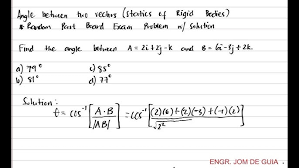 Angle between two vectors (Statics of Rigid Bodies)
* Random Past Board Exam Problem w/ solution
Find the angle between A = 2i + 2j - k and B = 6i - 3j + 2k.
a) 79° c) 85°
b) 81° d) 77°
Solution:
θ = cos⁻¹ [A · B / |AB|] = cos⁻¹ [(2)(6) + (2)(-3) + (-1)(2) / √2²
ENGR. JOM DE GUIA